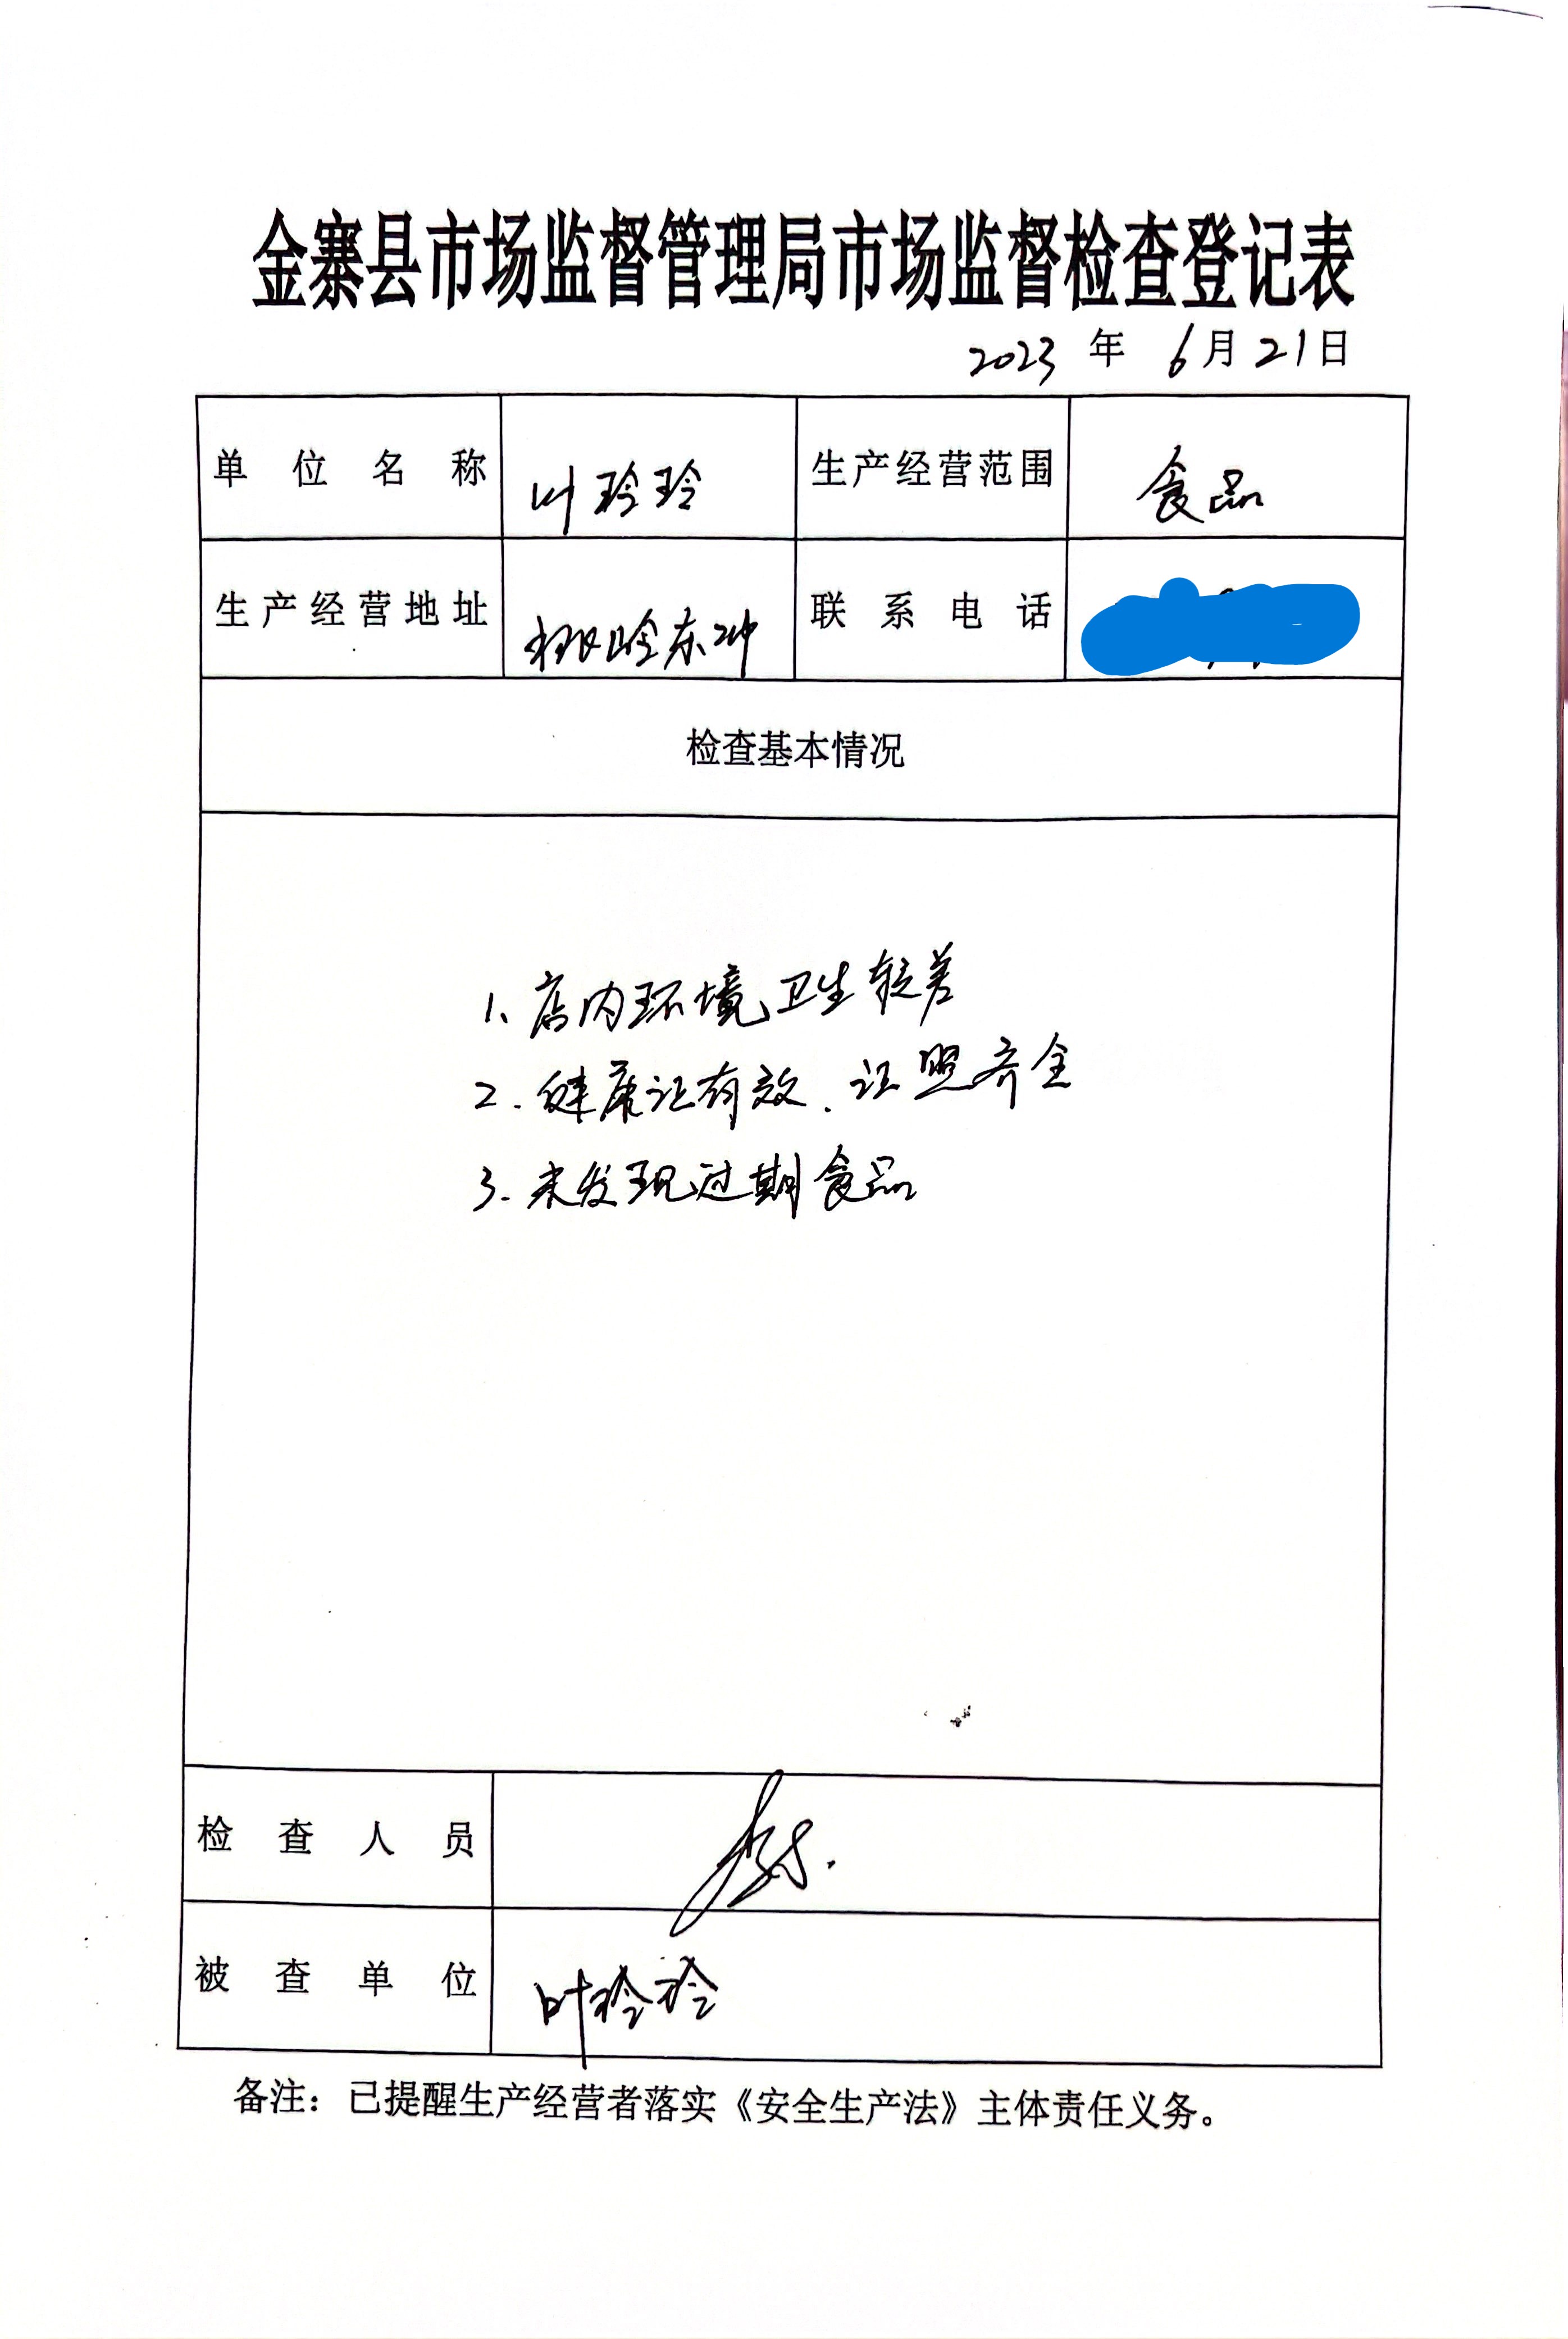 金寨县市场监督管理局市场监督检查登记表
2023 年 6月21日
单位名称 叶玲玲 生产经营范围 食品
生产经营地址 东冲 联系电话
检查基本情况
1、店内环境卫生较差
2.健康证有效.证照齐全
3.未发现过期食品
检查人员
被查单位 叶玲玲
备注：已提醒生产经营者落实《安全生产法》主体责任义务。